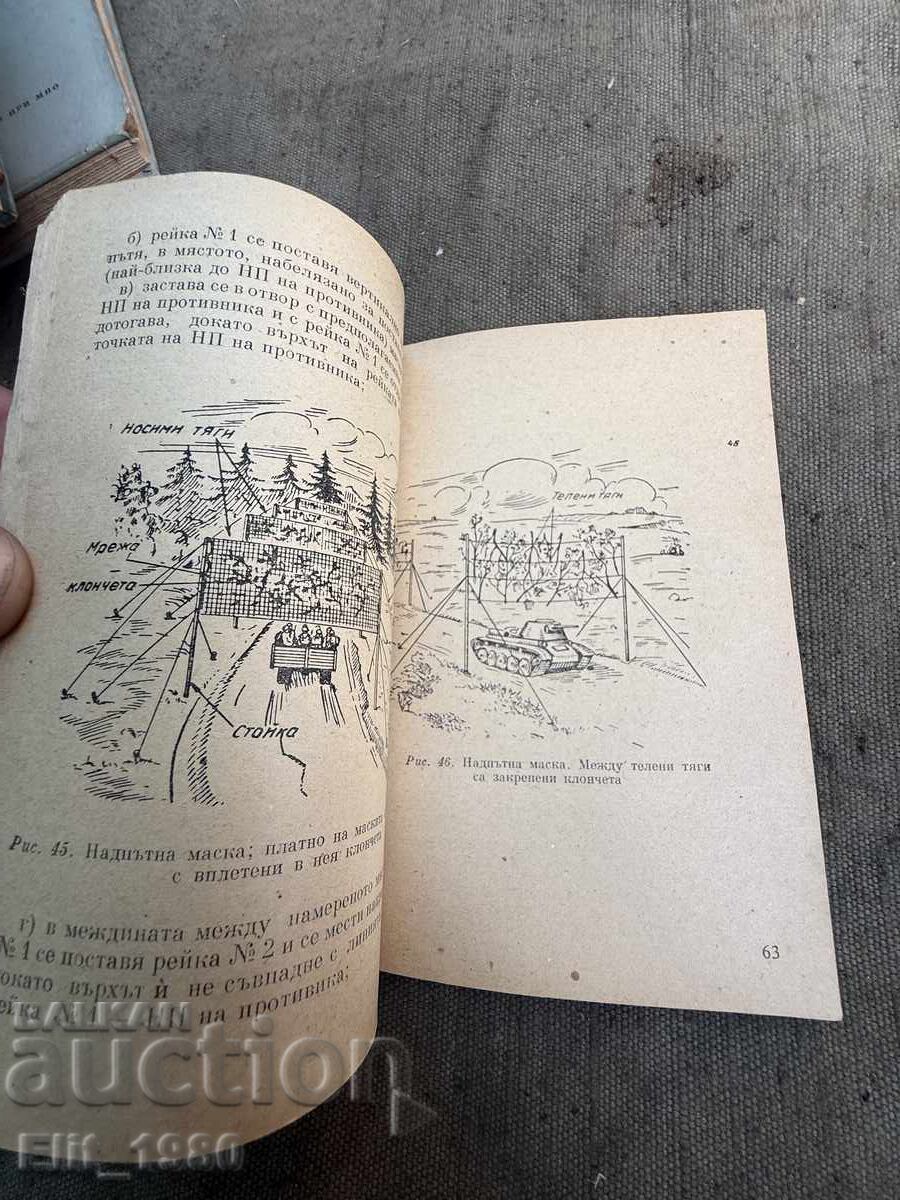 при мпо
б) рейка № 1 се поставя
пътя, в мястото, набелязано за
(най-близка до НП на противника)
в) застава се в отвор с
НП на противника и с рейка № 1 се
дотогава, докато върхът на рейката
точката на НП на противника;
Носими тяги
Мрежа
клончета
Стойка
Рис. 45. Надпътна маска; платно на маската
с вплетени в нея клончета
г) в междината между намереното
№ 1 се поставя рейка № 2 и се мести
докато върхът ѝ не съвпадне с
рейка № 1 НП на противника;
45
Телени тяги
Рис. 46. Надпътна маска. Между телени тяги
са закрепени клончета
63
БАЛКАН
auction
Elit_1980